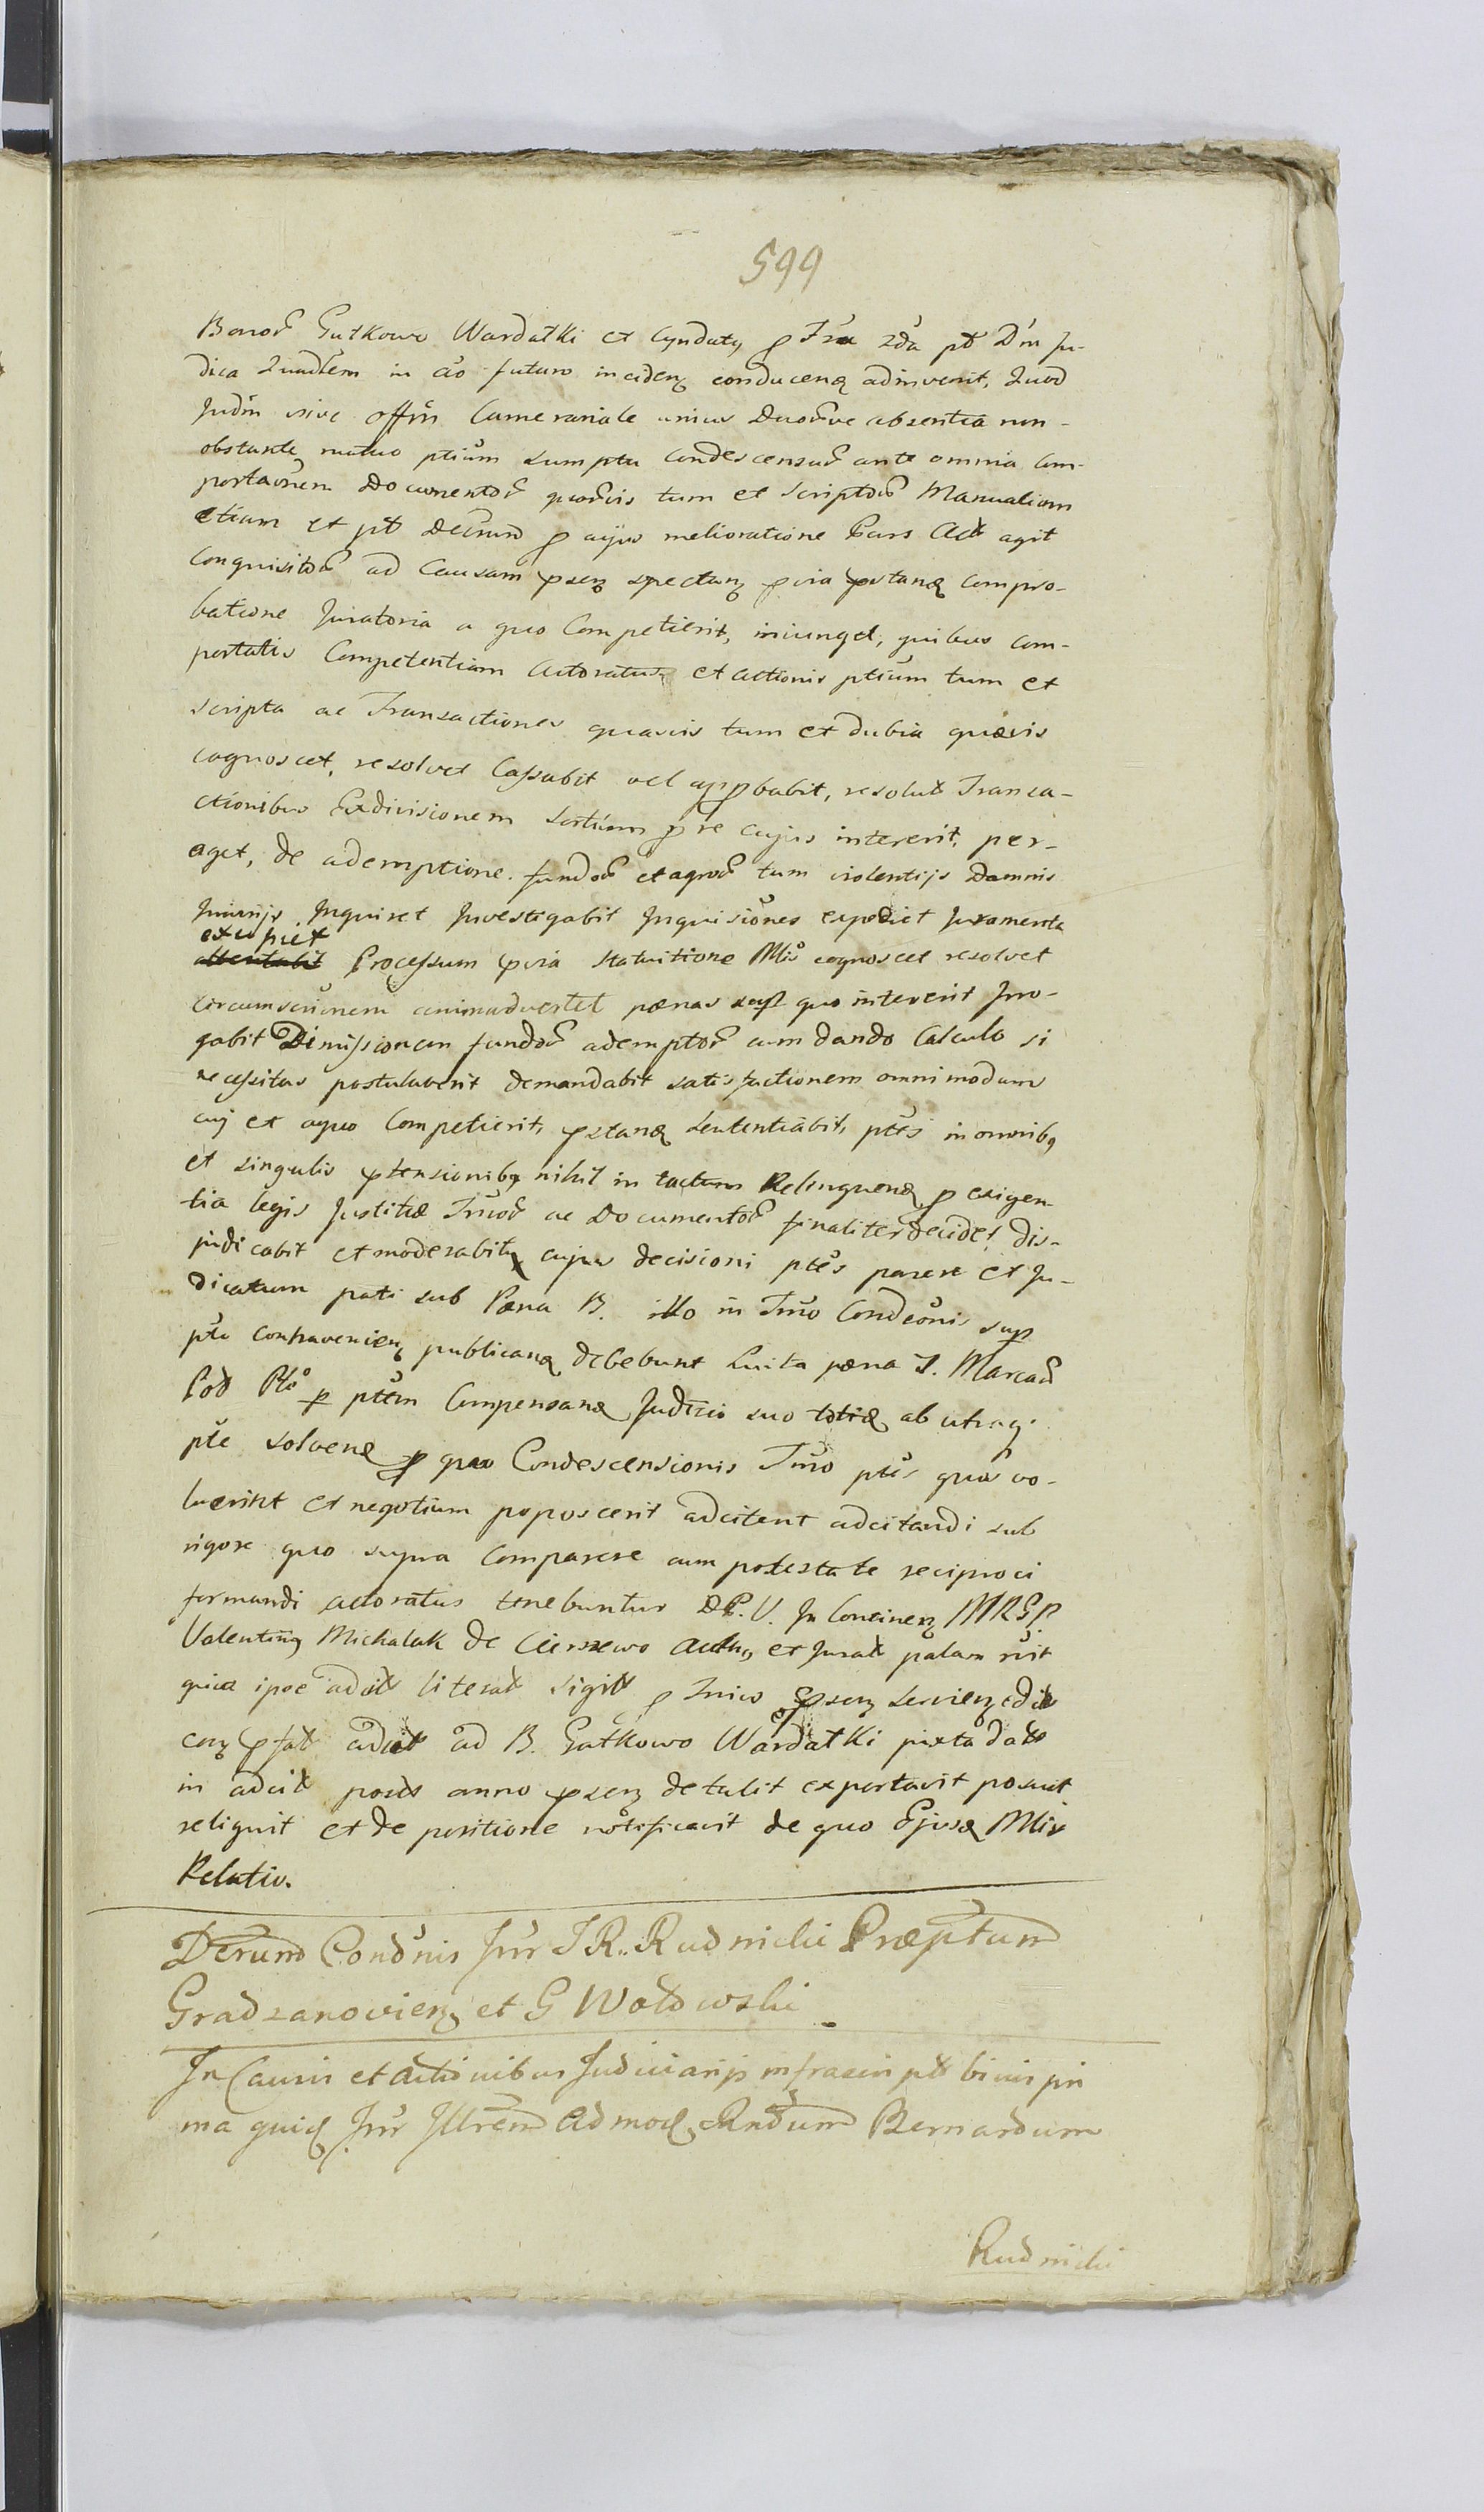 599
Bonor Gutkowo Wardatki et Cyndaty p Fza zda pt Dm Ju-
dica Quadlem in ao futuro inciden conducen adinvenit, Quod
Judm sive offm Camerariale unius Duorve absentia non-
obstante mutuo ptium sumptu condescensur ante omnia Com-
portaonem Documentor quorvis tum et Scriptor Manualium
etiam et pt Decrum p cujus melioratione Pars Act agit
Conquisitor ad Causam psen spectan pvia pstan compro-
batione Juratoria a quo Competierit, iniunget, quibus Com-
portatis Competentiam Actoratus et actionis ptium tum et
scripta ac Transactiones quasvis tum et dubia quævis
cognoscet, resolvet Cassabit vel appbabit, resolut Transa-
ctionibus Exdivisionem Sortium p re cujus intererit, per-
aget, de ademptione fundor et agror tum violentijs Damnis
Iniurijs Inquiret Investigabit Inquisiones expediet Juramenta
excipiet
Processum pvia Statuitione Mlis cognoscet resolvet
circumscrionem animadvertet pænas sup quo intererit Irro-
gabit Dimissionem fundor ademptor cum dando Calculo si
necessitas postulaverit demandabit satisfactionem omnimodam
cuj et aquo Competierit, pstan Sententiabit, ptes in omnibq
et singulis ptensionibq nihil in tactum Relinquen p exigen-
tia legis Justitiæ Jurior ac Documentor finaliter decidet dis-
judicabit et moderabitur cujus decisioni ptes parere et Ju-
dicatum pati sub Pæna B. illo in Tmo Condeonis sup
pte Contravenien publican debebunt Luita pæna 3. Marcar
Pol Pte p ptem Compensan Judicio suo totie ab utraq
pte solven p quo Condescensionis Tmo ptes quos vo-
luerint et negotium poposcerit adcitent adcitandi sub
rigore quo supra Comparere cum potestate reciproci
formandi actoratus tenebuntur DP. V. In Concinen MRGP
Valentinq Michalak de Ciernewo Authq et Jurat palam rcit
quia ipse adcit literat sigilt p Tmio psen Servien edit
cen pfat adcit ad B. Gutkowo Wardatki juxta dat
in adcit posit anno psen detulit exportavit posuit
reliquit et de positione notificavit de quo Ejusd Mlis
Relatio.
Decrum Condnis Inr I R. Rudnicki Præptum
Gradzanovien et G Wołowski
In Causis et Actionibus Judiciarijs infrascript binis pri
ma quid Inr Illrem Admod Rndum Bernardum
Rudnicki